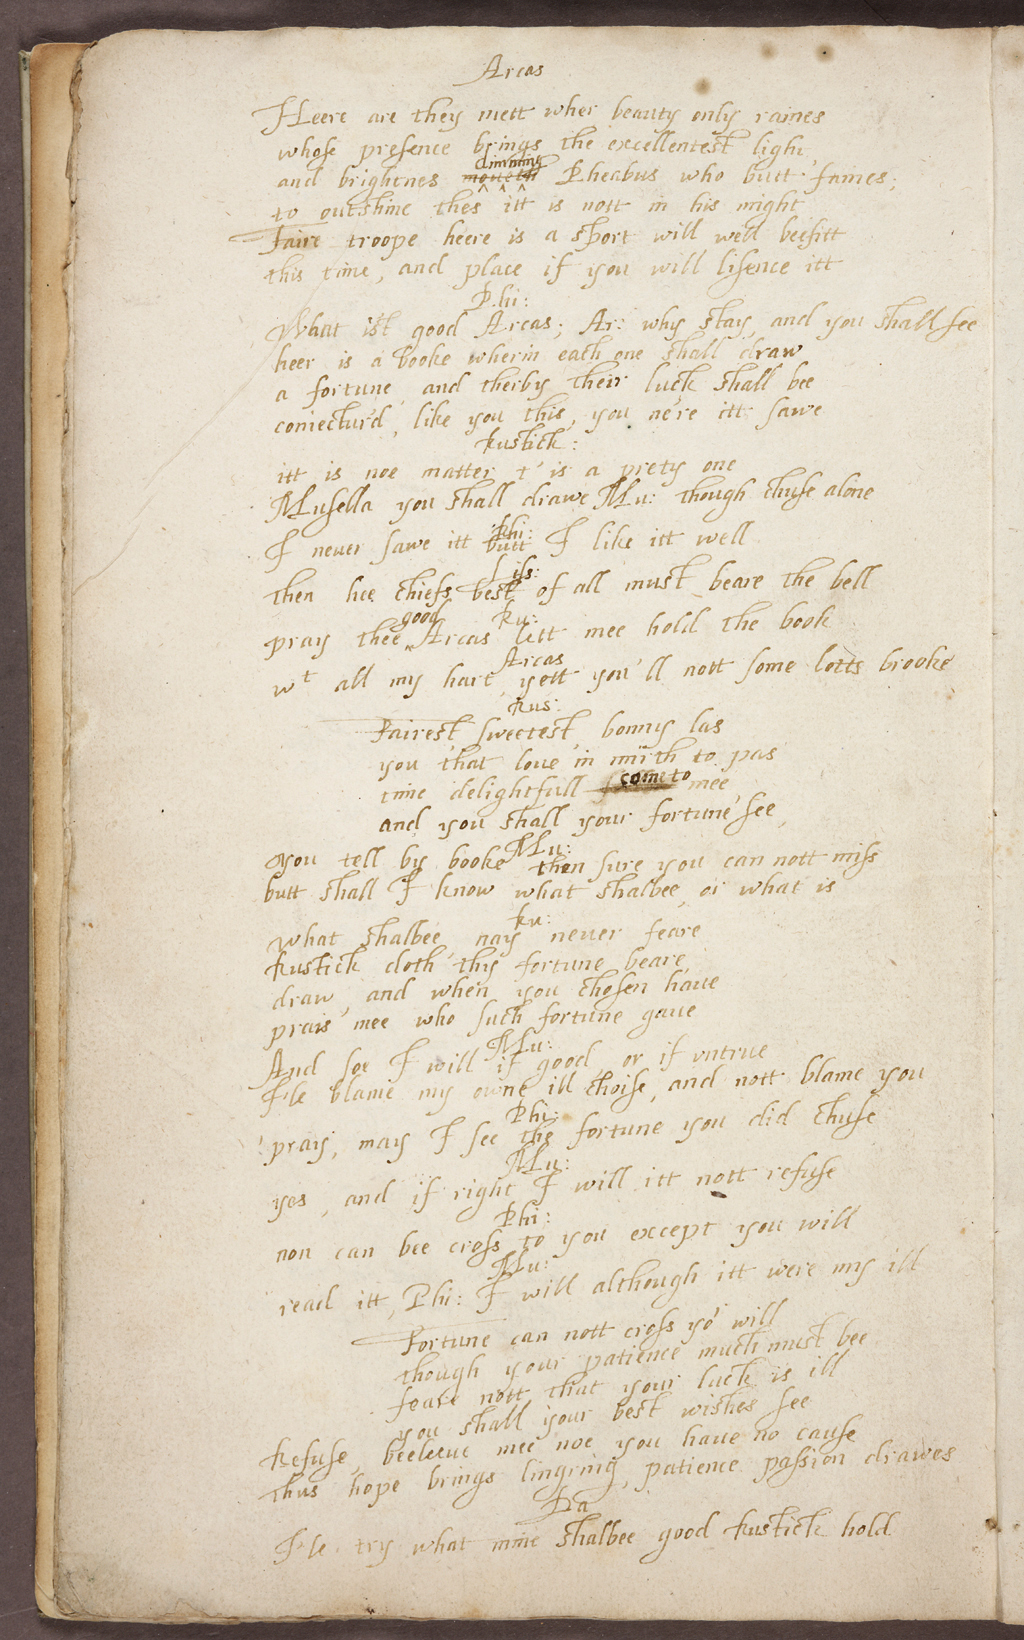 Arcas
Heere are they mett wher beauty only raines
whose presence brings the excellentest light,
dimming
and brightnes moueth Pheabus who butt faines;
to outshine thes itt is nott in his might
Faire troope heere is a sport will well beefitt
this time, and place if you will lisence itt
Phi:
What ist good Arcas; Ar: why stay, and you shall see
heer is a booke wherin each one shall draw
a fortune, and therby their luck shall bee
coniectur'd, like you this, you ne're itt sawe
Rustick:
itt is noe matter t' is a prety one
Musella you shall drawe Mu: though chuse alone
Phi:
I never sawe itt butt I like itt well
Liss:
then hee chiefs best of all must beare the bell
good Ru:
pray thee Arcas lett mee hold the book
Arcas
wt all my hart, yett you'll nott some lotts brooke
Rus:
Fairest, sweetest, bonny las
you that loue in mirth to pas
time delightfull come to mee
and you shall your fortune see,
Mu:
you tell by booke then sure you can nott miss
butt shall I know what shalbee, or what is
Ru:
What shalbee, nay never feare
Rustick doth thy fortune beare,
draw, and when you chosen haue
prais mee who such fortune gaue
Mu:
And soe I will if good, or if vntrue
I'le blame my owne ill choise, and nott blame you
Phi:
pray, may I see the fortune you did chuse
Mu:
yes, and if right I will itt nott refuse
Phi:
non can bee cross to you except you will
Mu:
read itt, Phi: I will although itt were my ill
Fortune can nott cross yor will
though your patience much must bee
feare nott that your luck is ill
you shall your best wishes see
Refuse, beeleeue mee noe you haue no cause
thus hope brings lingring, patience passion drawes
Da
I'le try what mine shalbee good Rustick hold